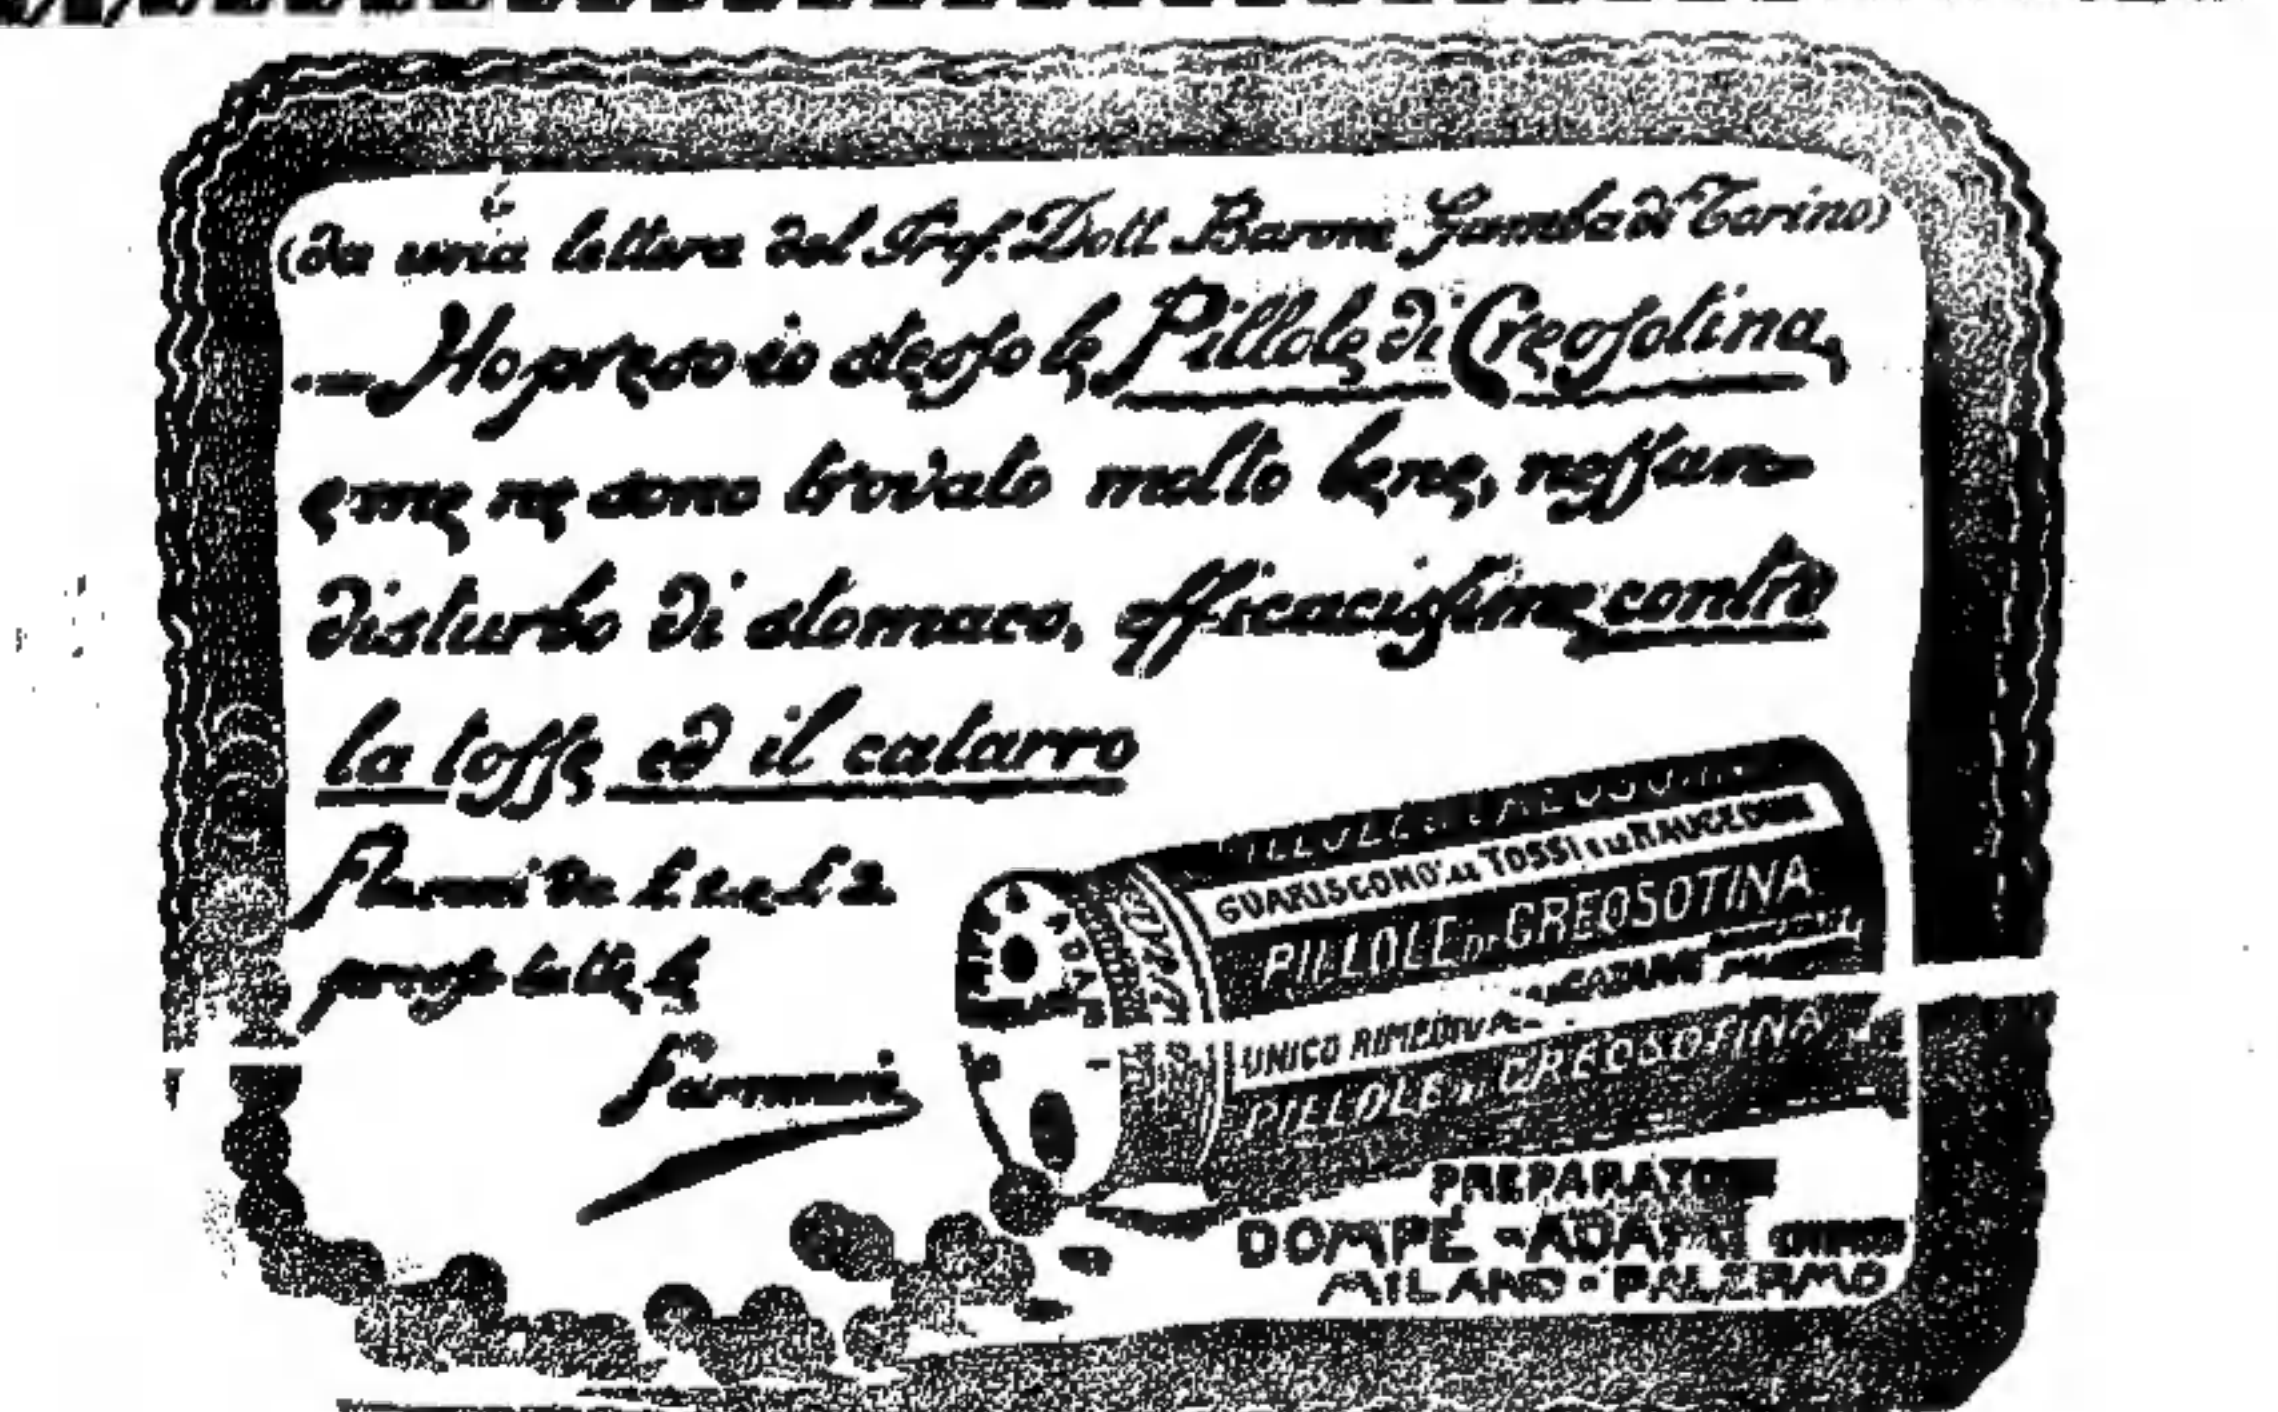 (da una lettera del Prof. Dott. Barone Gamba di Torino)
— Ho preso io stesso le Pillole di Creosotina,
e me ne sono trovato molto bene, nessun
disturbo di stomaco, efficacissime contro
la tosse ed il catarro
presso tutte le
Farmacie
PILLOLE DI CREOSOTINA
GUARISCONO LE TOSSI E LE RAUCEDINI
PILLOLE DI CREOSOTINA
UNICO RIMEDIO
PILLOLE DI CREOSOTINA
PREPARATORI
DOMPÉ - ADAMI
MILANO - PALERMO